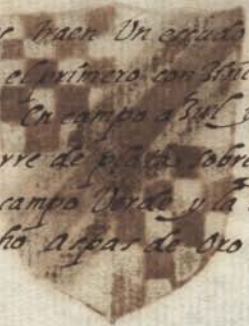 traen Un escudo
el primero con
En campo aZul
rre de plata sobre
campo Verde y la
ho Aspas de Oro